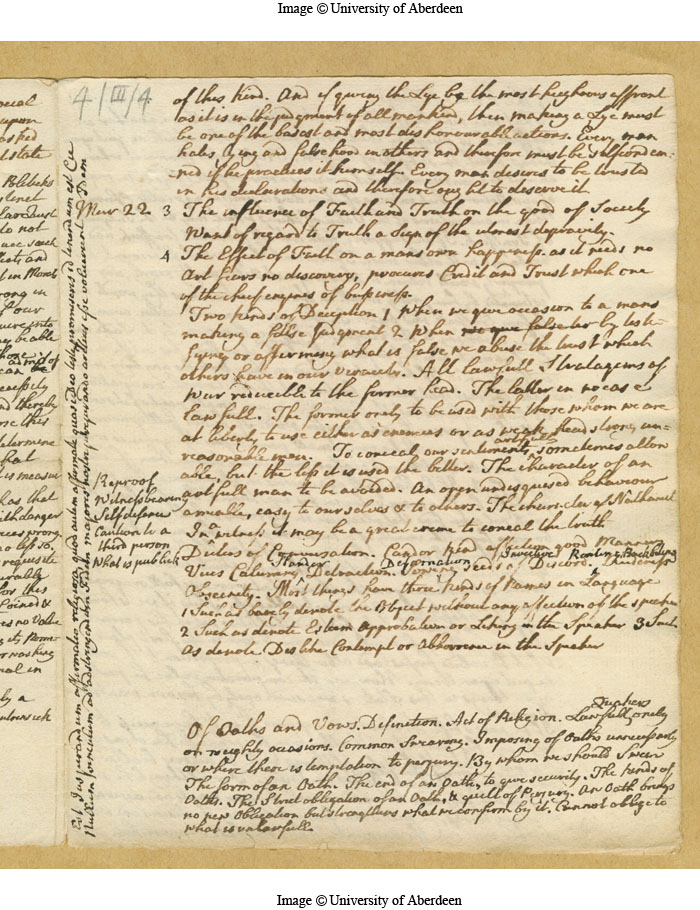 Image © University of Aberdeen
4/III/4
of this kind. And if giving the Lye be the most heighnous affront
as it is in the judgment of all mankind, then making a Lye must
be one of the basest and most dishonourable actions. Every man
hates lying and falsehood in others and therefore must be selfcondem-
ned if he practices it himself. Every man desires to be trusted
in his declarations and therefore ought to deserve it
Mar 22 3 The influence of Faith and Truth on the good of Society
Want of regard to Truth a Sign of the utmost depravity.
4 The Effect of Truth on a mans own happiness. as it needs no
Art fears no discovery, procures Credit and Trust which one
of the chief engines of business.
Two kinds of Deception 1 When we give occasion to a mans
making a false Judgment 2 When by testi-
fying or affirming what is false we abuse the trust which
others have in our veracity. All lawfull Stratagems of
War reducible to the former head. The latter in no case
Lawfull. The former onely to be used with those whom we are
at liberty to use either as enemies or as weak, head strong, un-
reasonable men. To conceal our sentiments artfully sometimes allow
able, but the less it is used the better. The character of an
artfull man to be avoided. An open undisguised behaviour
amiable, easy to ourselves & to others. The character of Nathaniel
In a witness it may be a great crime to conceal the truth
Reproof
Witnessbearing
Self defence
Caution to a
third person
What is publick
Duties of Conversation. Candor kind affection good Manners
Vices Calumny Slander Detraction Defamation Sowing Seeds of Discord. Invective Ranting, Backbiting
Obscenity. Most things have three kinds of Names in Language
1 Such as barely denote the Object without any affection of the speaker
2 Such as denote Esteem approbation or Liking in the Speaker 3 Such
As denote Dislike Contempt or Abhorrence in the Speaker
Of Oaths and Vows. Definition. Act of Religion. Lawfull Quakers onely
on weighty occasions. Common Swearing. Imposing of Oaths unnecessarly
or where there is temptation to perjury. By whom we should Swear
The form of an Oath. The end of an Oath, to give security. The kinds of
Oaths. The Strict obligation of an Oath, & guilt of Perjury. An Oath brings
no new Obligation but strengthens what we confirm by it. Cannot oblige to
what is unlawfull.
Est Jusjurandum affirmatio religiosa, quod autem affirmate quasi Deo teste promiseris id tenendum est Cic
Nullum vinculum ad adstringendam fidem majores nostri jurejurando arctius esse voluerunt Idem
Image © University of Aberdeen